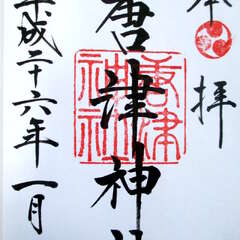 奉拝
唐津神社
唐津
神社
平成二十六年一月